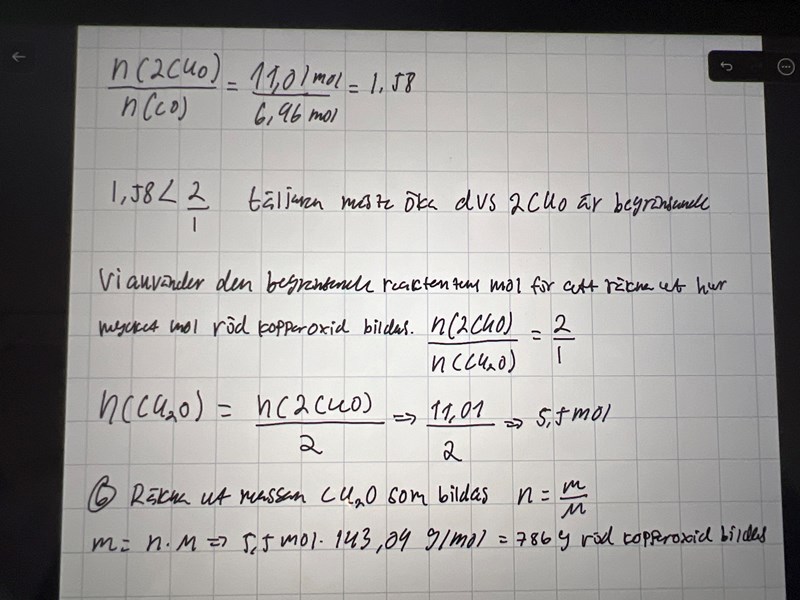 n(2CuO) / n(CO) = 11,01 mol / 6,96 mol = 1,58
1,58 < 2/1 täljaren måste öka dvs 2CuO är begränsande
Vi använder den begränsande reaktantens mol för att räkna ut hur
mycket mol röd kopparoxid bildas. n(2CuO) / n(Cu₂O) = 2/1
n(Cu₂O) = n(2CuO) / 2 => 11,01 / 2 => 5,5 mol
⑥ Räkna ut massan Cu₂O som bildas n = m/M
m = n·M => 5,5 mol · 143,09 g/mol = 786 g röd kopparoxid bildas